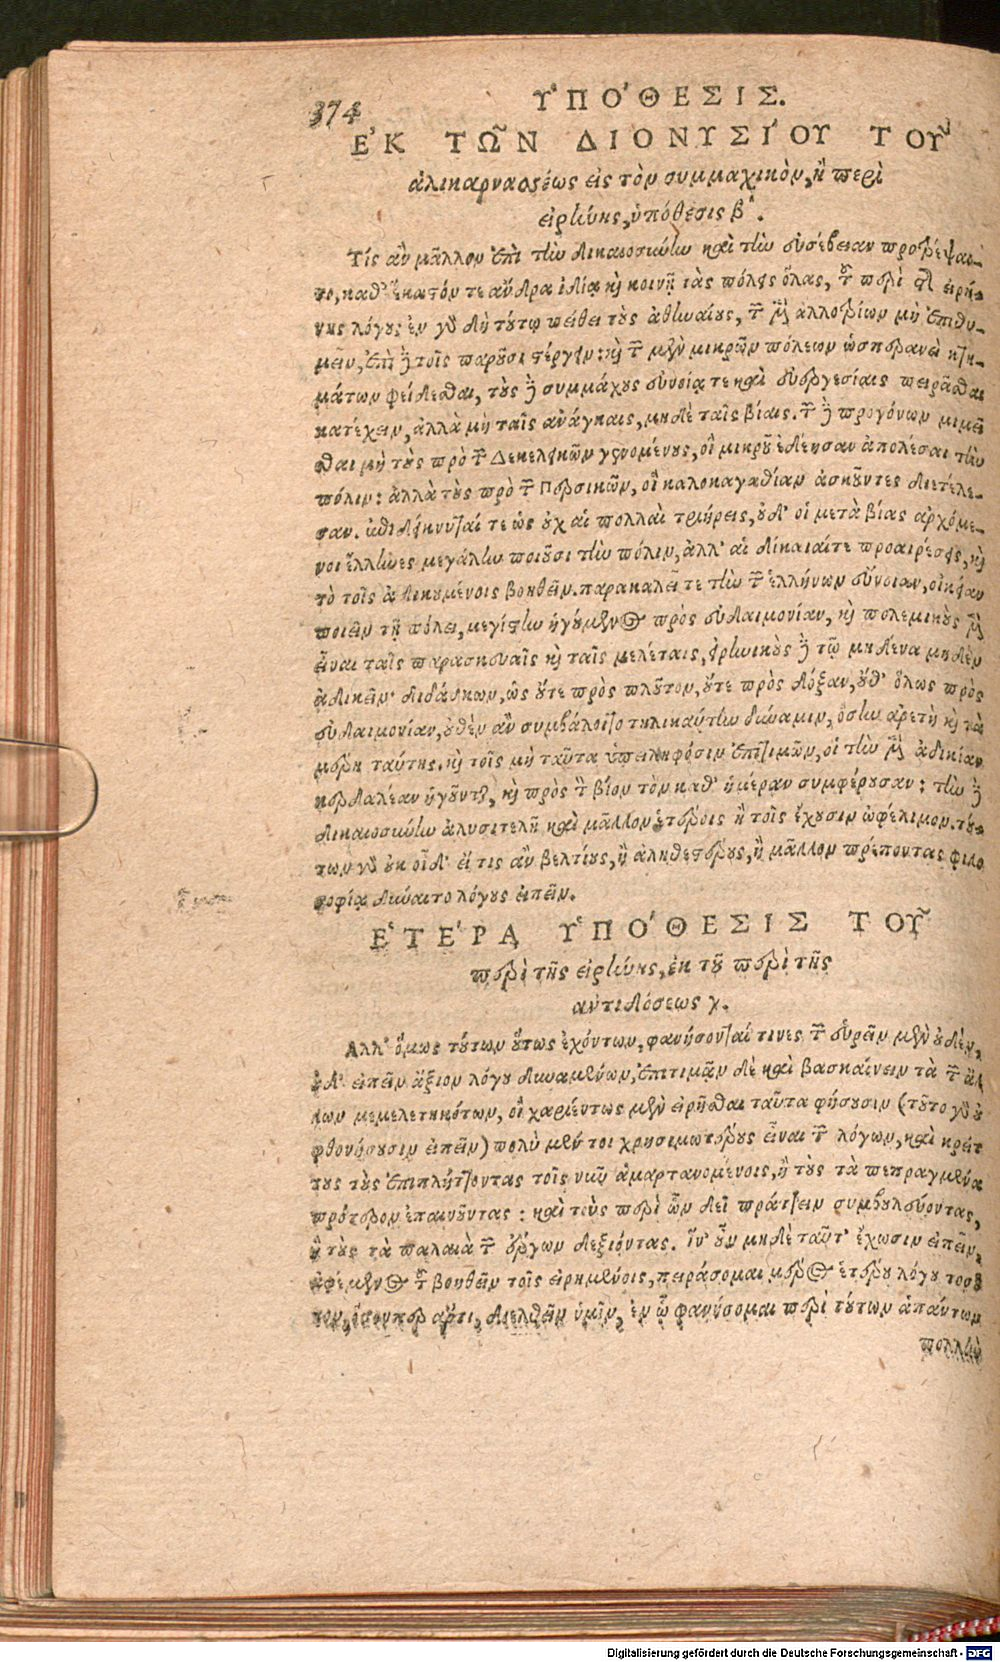 374
ΥΠΟ´ΘΕΣΙΣ.
ΕΚ ΤΩ͂Ν ΔΙΟΝΥΣΙ´ΟΥ ΤΟΥ͂
ἁλικαρνασέως εἰς τὸν συμμαχικὸν, ἢ περὶ
εἰρήνης, ὑπόθεσις β΄.
Τίς ἂν μᾶλλον ἐπὶ τὴν δικαιοσύνην καὶ τὴν εὐσέβειαν προτρέψαι-
το, καθ' ἕκαστόν τε ἄνδρα ἰδίᾳ καὶ κοινῇ τὰς πόλεις ὅλας, τοῦ περὶ τῆς εἰρή-
νης λόγου; ἐν γὰρ δὴ τούτῳ πείθει τοὺς ἀθηναίους, τῶν μὲν ἀλλοτρίων μὴ ἐπιθυ-
μεῖν, ἐπὶ δὲ τοῖς παροῦσι στέργειν: καὶ τῶν μὲν μικρῶν πόλεων ὡσπερανεὶ κτη-
μάτων φείδεσθαι, τοὺς δὲ συμμάχους εὐνοίᾳ τε καὶ εὐεργεσίαις πειρᾶσθαι
κατέχειν, ἀλλὰ μὴ ταῖς ἀνάγκαις, μηδὲ ταῖς βίαις. τῶν δὲ προγόνων μιμεῖ
σθαι μὴ τοὺς πρὸ τῶν Δεκελεικῶν γενομένους, οἳ μικροῦ ἐδέησαν ἀπολέσαι τὴν
πόλιν: ἀλλὰ τοὺς πρὸ τῶν Περσικῶν, οἳ καλοκαγαθίαν ἀσκοῦντες διετέλε-
σαν. ἐπιδείκνυταί τε ὡς οὐχ αἱ πολλαὶ τριήρεις, οὐδ' οἱ μετὰ βίας ἀρχόμε-
νοι ἕλληνες μεγάλην ποιοῦσι τὴν πόλιν, ἀλλ' αἱ δίκαιαίτε προαιρέσεις, καὶ
τὸ τοῖς ἀδικουμένοις βοηθεῖν. παρακαλεῖ τε τὴν τῶν ἑλλήνων εὔνοιαν, οἰκείαν
ποιεῖν τῇ πόλει, μεγίστην ἡγούμενος πρὸς εὐδαιμονίαν, καὶ πολεμικοὺς μὲν
εἶναι ταῖς παρασκευαῖς καὶ ταῖς μελέταις, εἰρηνικοὺς δὲ τῷ μηδένα μηδὲν
ἀδικεῖν· διδάσκων, ὡς οὔτε πρὸς πλοῦτον, οὔτε πρὸς δόξαν, οὔθ' ὅλως πρὸς
εὐδαιμονίαν, οὐθὲν ἂν συμβάλοιτο τηλικαύτην δύναμιν, ὅσην ἀρετὴ καὶ τὰ
μέρη ταύτης. καὶ τοῖς μὴ ταῦτα ὑπειληφόσιν ἐπιτιμῶν, οἳ τὴν μὲν ἀδικίαν
κερδαλέαν ἡγοῦνται, καὶ πρὸς τὸν βίον τὸν καθ' ἡμέραν συμφέρουσαν: τὴν δὲ
δικαιοσύνην ἀλυσιτελῆ καὶ μᾶλλον ἑτέροις ἢ τοῖς ἔχουσιν ὠφέλιμον. τού-
των γὰρ οὐκ οἶδ' εἴ τις ἂν βελτίους, ἢ ἀληθεστέρους, ἢ μᾶλλον πρέποντας φιλο
σοφίᾳ δύναιτο λόγους εἰπεῖν.
ΕΤΕ´ΡΑ ΥΠΟ´ΘΕΣΙΣ ΤΟΥ͂
περὶ τῆς εἰρήνης, ἐκ τοῦ περὶ τῆς
ἀντιδόσεως γ.
Αλλ' ὅμως τούτων οὕτως ἐχόντων, φανήσονταί τινες τῶν εὑρεῖν μὲν οὐδὲν,
οὐδ' εἰπεῖν ἄξιον λόγου δυναμένων, ἐπιτιμᾶν δὲ καὶ βασκαίνειν τὰ τῶν ἄλ
λων μεμελετηκότων, οἳ χαριέντως μὲν εἰρῆσθαι ταῦτα φήσουσιν (τοῦτο γὰρ οὐ
φθονήσουσιν εἰπεῖν) πολὺ μέν τοι χρησιμωτέρους εἶναι τῶν λόγων, καὶ κρείτ
τους τοὺς ἐπιπλήττοντας τοῖς νῦν ἁμαρτανομένοις, ἢ τοὺς τὰ πεπραγμένα
πρότερον ἐπαινοῦντας: καὶ τοὺς περὶ ὧν δεῖ πράττειν συμβουλεύοντας,
ἢ τοὺς τὰ παλαιὰ τῶν ἔργων διεξιόντας. ἵν' οὖν μηδὲ ταῦτ' ἔχωσιν εἰπεῖν,
ἀφέμενος τοῦ βοηθεῖν τοῖς εἰρημένοις, πειράσομαι μέρος ἑτέρου λόγου τοσοῦ
τον, ὅσονπερ ἄρτι, διελθεῖν ὑμῖν, ἐν ᾧ φανήσομαι περὶ τούτων ἁπάντων
πολλὴν
Digitalisierung gefördert durch die Deutsche Forschungsgemeinschaft - DFG